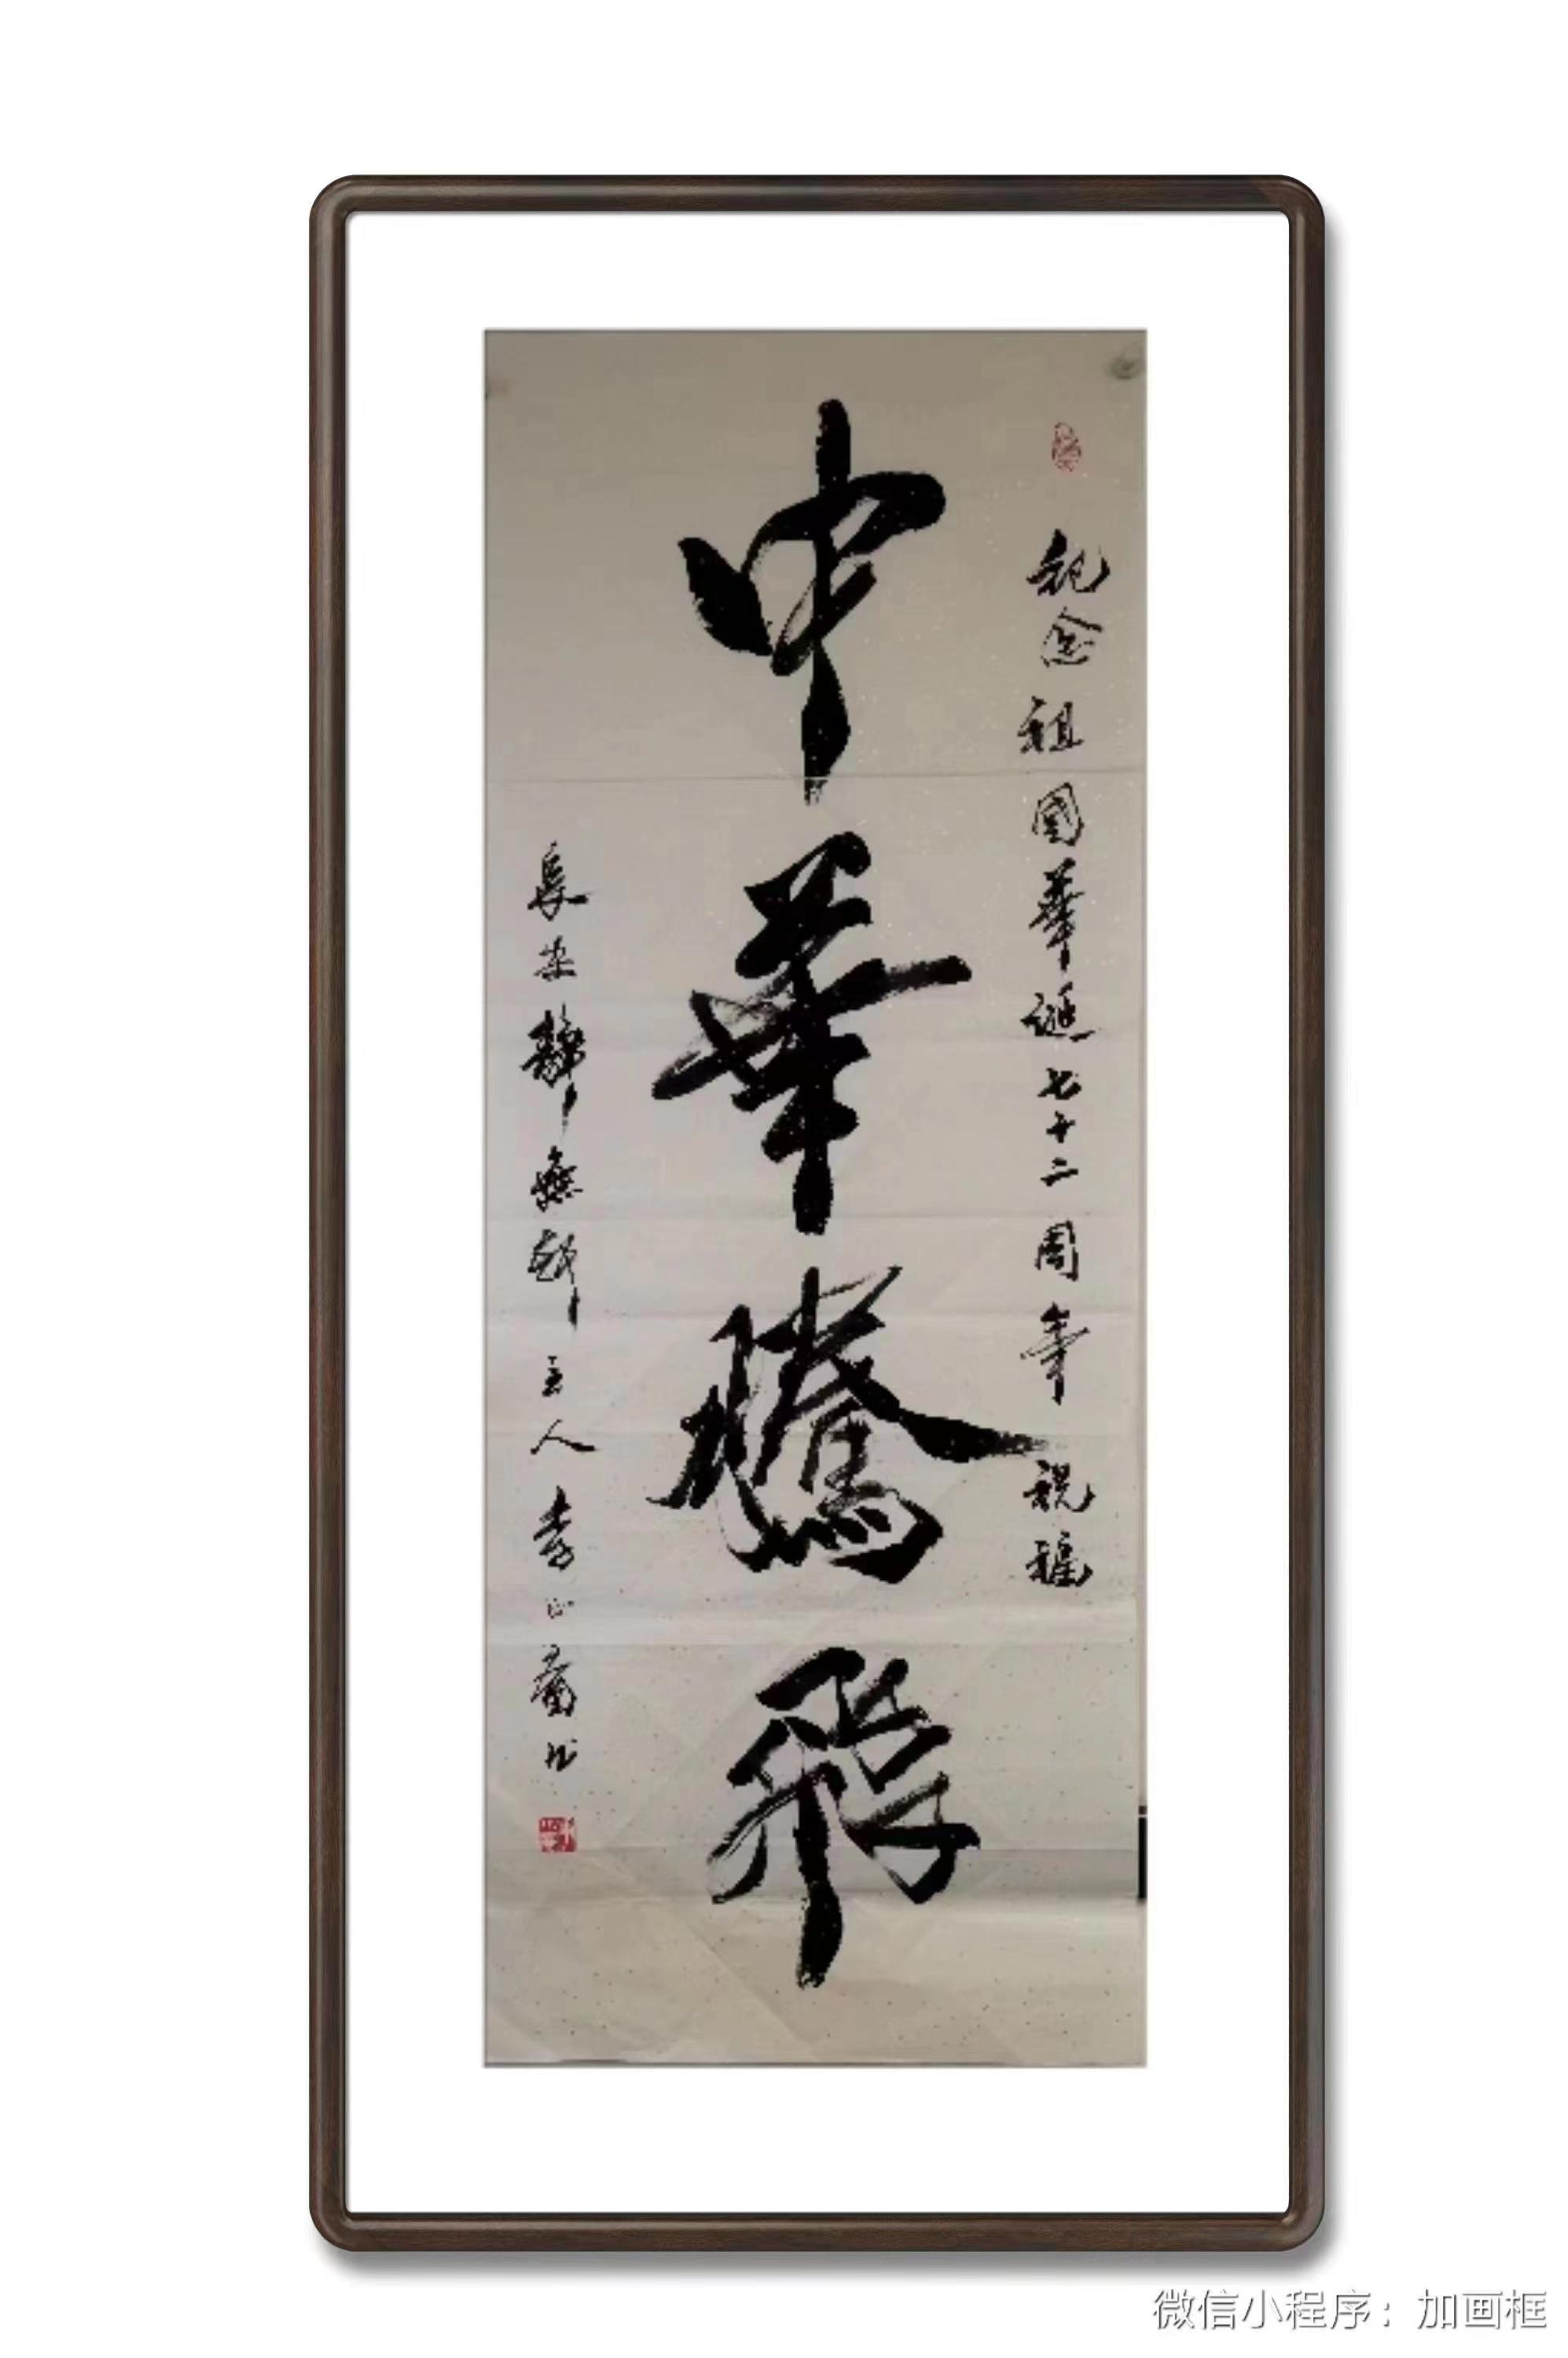 紀念祖國華誕七十二周年祝福
中華騰飛
長安靜 無 主人李 書
微信小程序：加画框